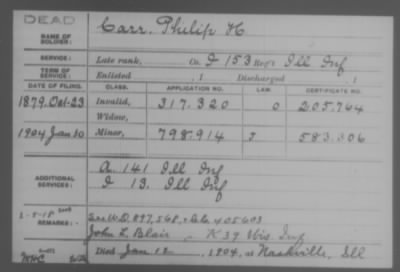 DEAD
NAME OF SOLDIER: Carr, Philip H
SERVICE: Late rank, Co. I 153 Reg't Ill Inf
TERM OF SERVICE: Enlisted , 1 Discharged , 1
DATE OF FILING. CLASS. APPLICATION NO. LAW. CERTIFICATE NO.
1879, Oct-23 Invalid, 317.320 O 205.764
Widow,
1904 Jan 10 Minor, 798.914 583.306
ADDITIONAL SERVICES: A. 141 Ill Inf
I 13. Ill Inf
REMARKS: W.O. 897,568. 405603
John L. Blair - K 39 Wis Inf
Died Jan 12, 1904, at Nashville, Ill